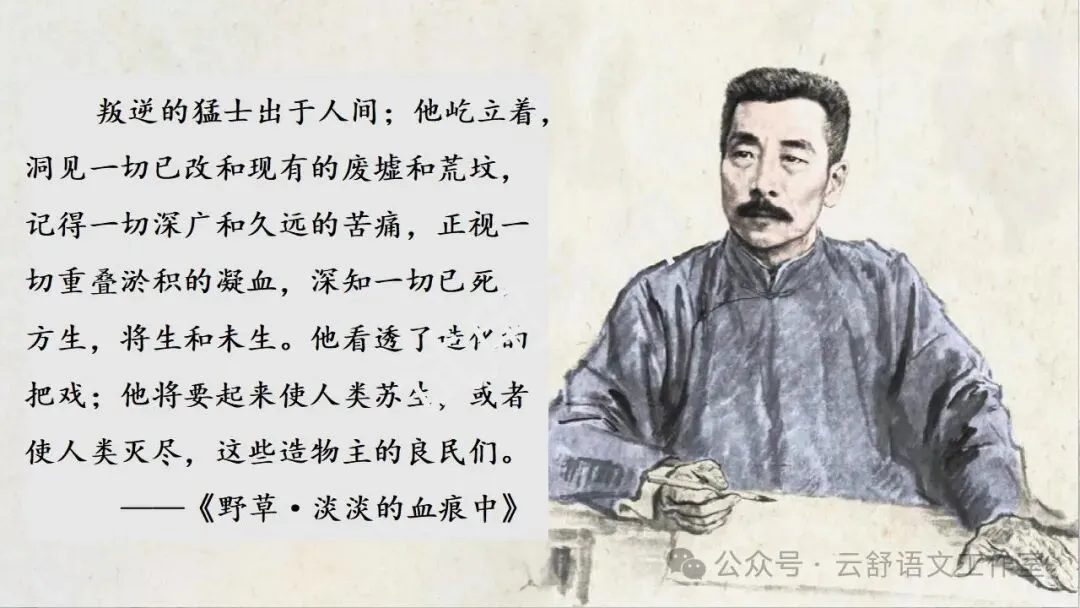 叛逆的猛士出于人间；他屹立着，
洞见一切已改和现有的废墟和荒坟，
记得一切深广和久远的苦痛，正视一
切重叠淤积的凝血，深知一切已死，
方生，将生和未生。他看透了造化的
把戏；他将要起来使人类苏生，或者
使人类灭尽，这些造物主的良民们。
——《野草·淡淡的血痕中》
公众号·云舒语文工作室